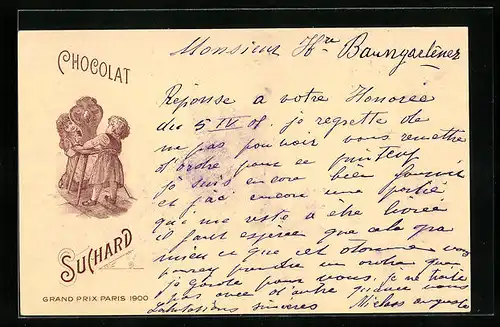 CHOCOLAT
SUCHARD
GRAND PRIX PARIS 1900
Monsieur Hri Baumgartener
Réponse a votre Honorée
du 5 IV 08. je regrette de
ne pas pouvoir vous remettre
d'ordre pour ce printemps
je suis encore bien fournit
et j'ai encore une partie
qui me reste a être livrée
il faut espérer que cela
mieux ce que cet otonne vous
pourez prendre un ordre que
je garde pour vous. je ne traite
pas avec d'autre que vous
Salutations sincères Auguste